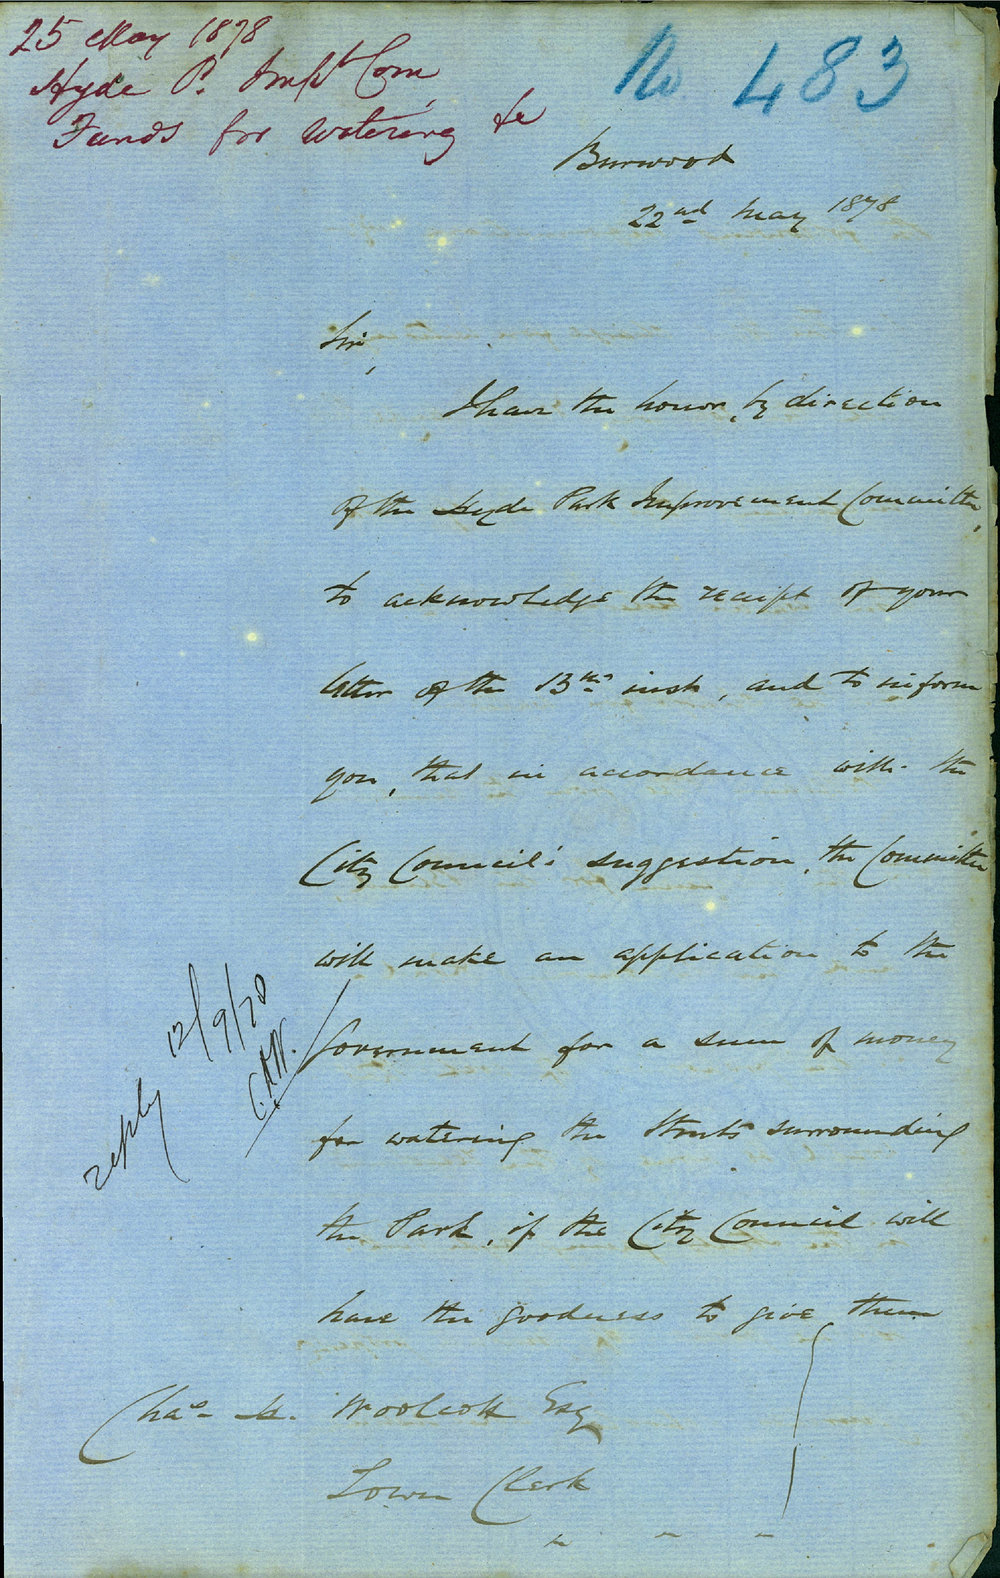 25 May 1878
Hyde P. Impt Com
Funds for watering &c
No 483
Burwood
22nd May 1878
Sir,
I have the honor, by direction
of the Hyde Park Improvement Committee,
to acknowledge the receipt of your
letter of the 13th inst, and to inform
you, that in accordance with the
City Council's suggestion, the Committee
will make an application to the
Government for a sum of money
for watering the Streets surrounding
the Park, if the City Council will
have the goodness to give them
reply 12/9/78
Chas H. Woolcott Esq
Town Clerk